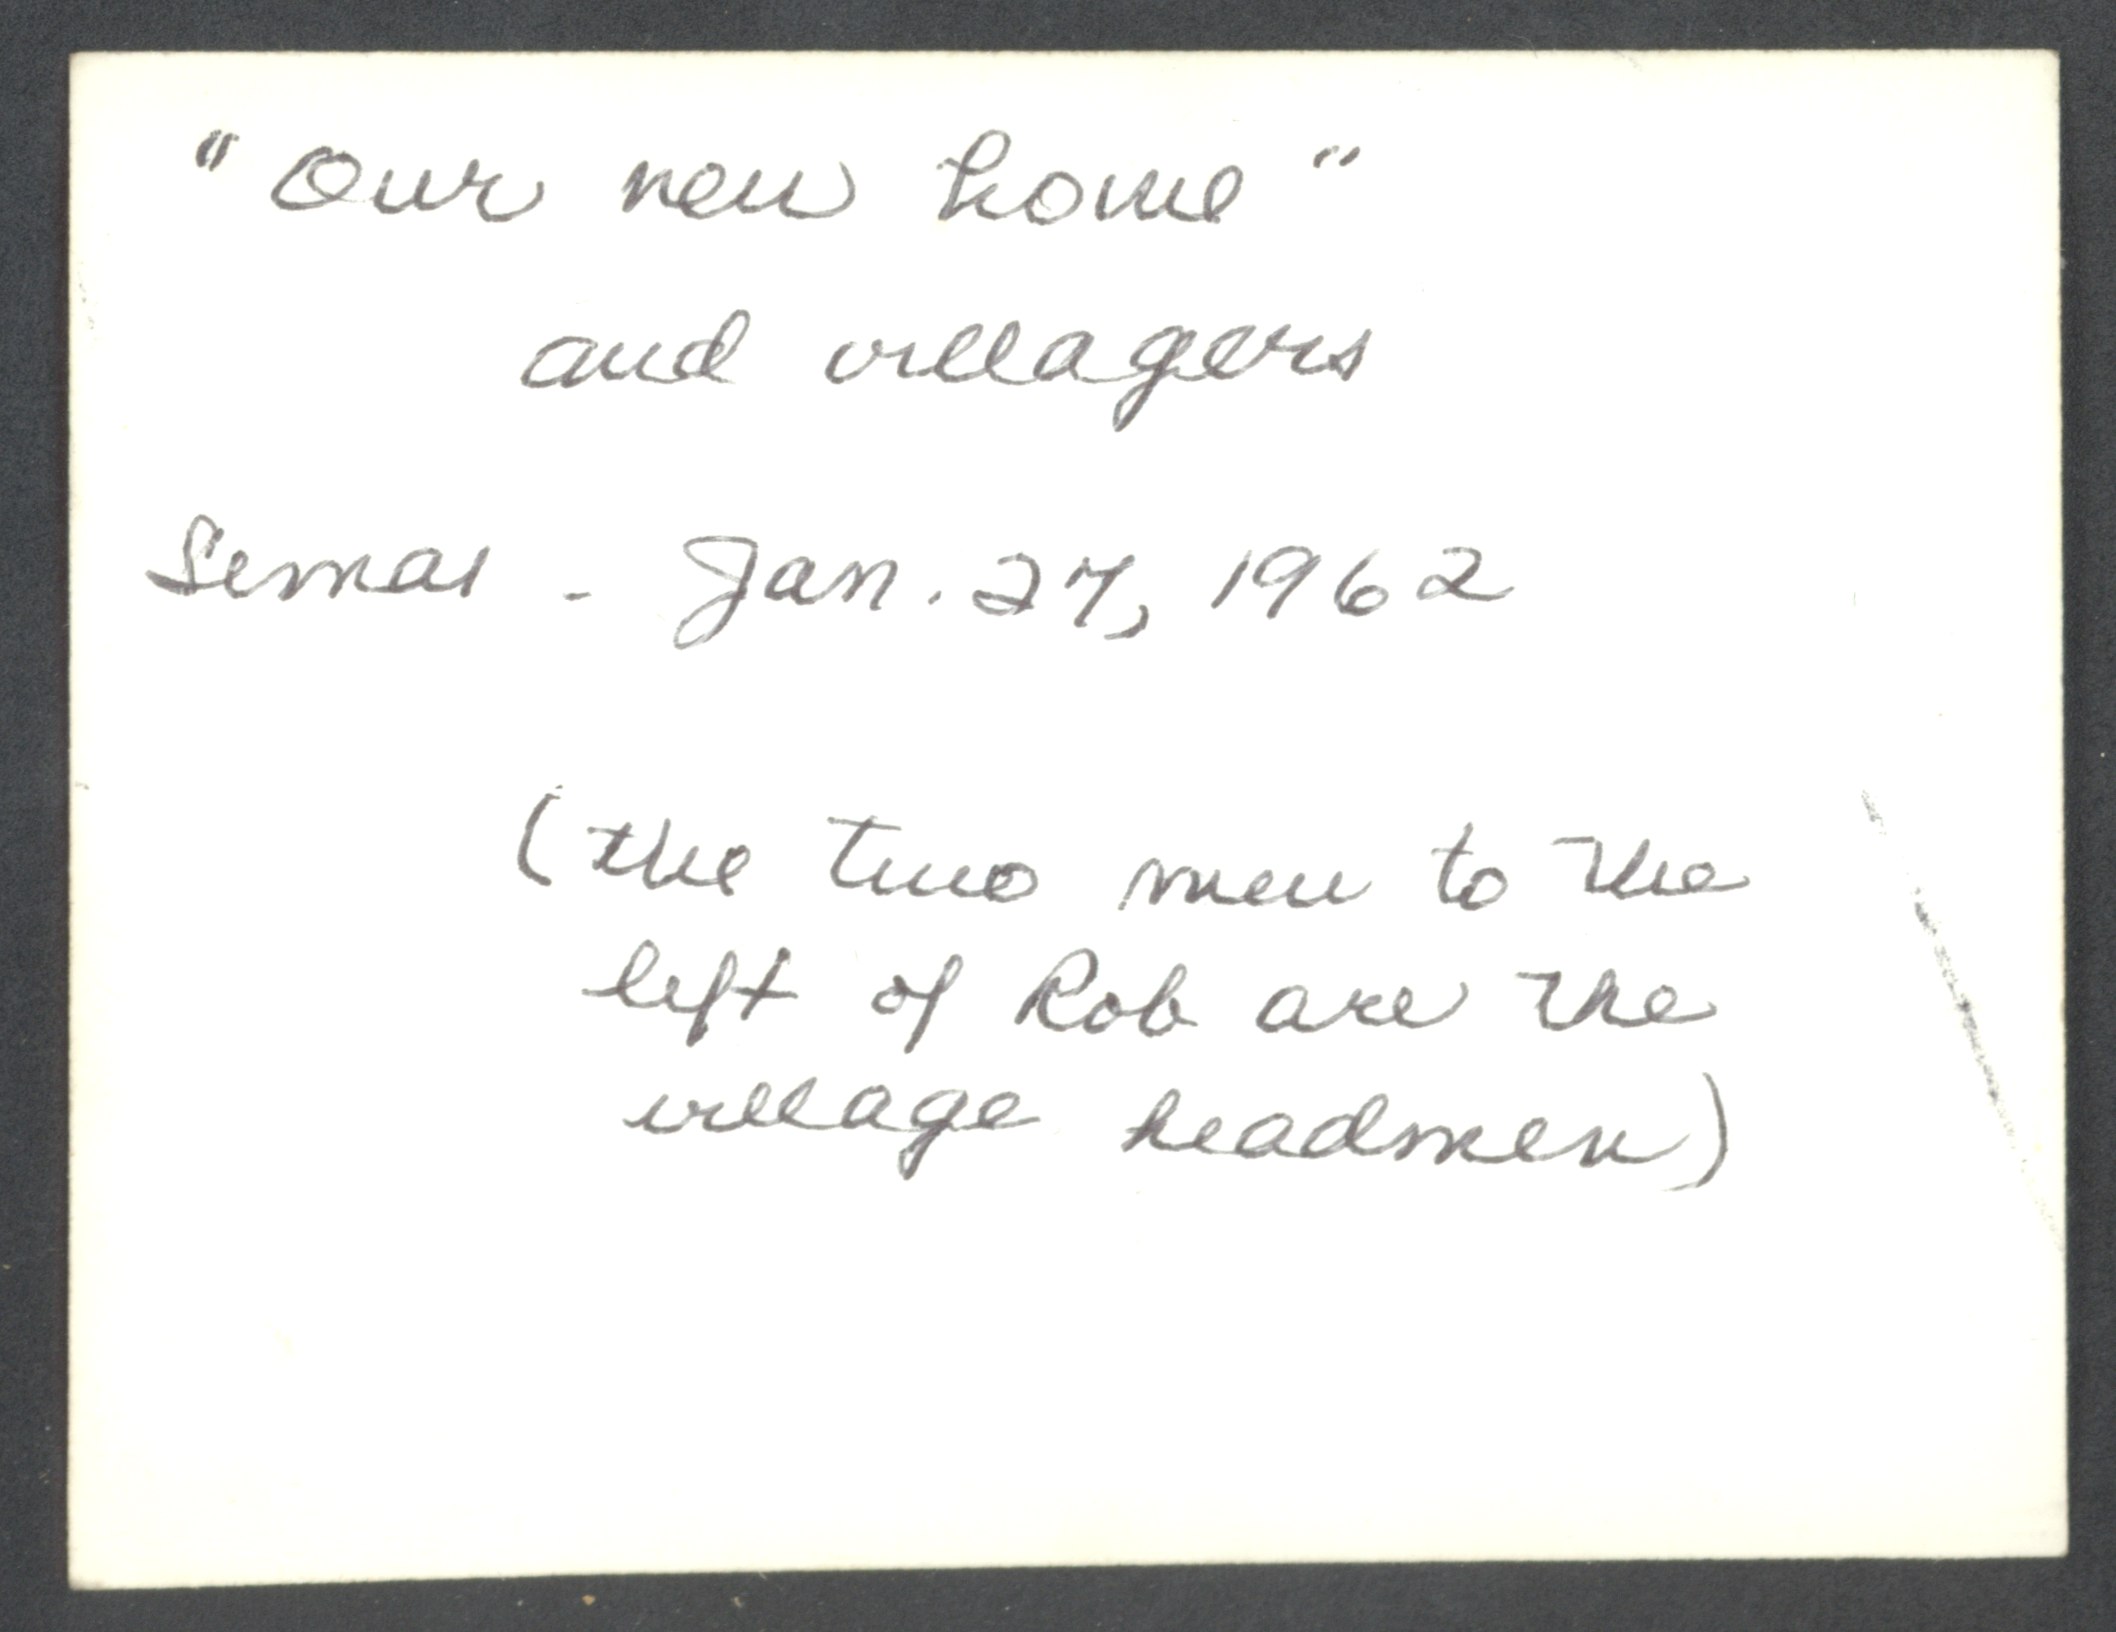 "Our new home"
and villagers
Semai - Jan. 27, 1962
(the two men to the
left of Rob are the
village headmen)